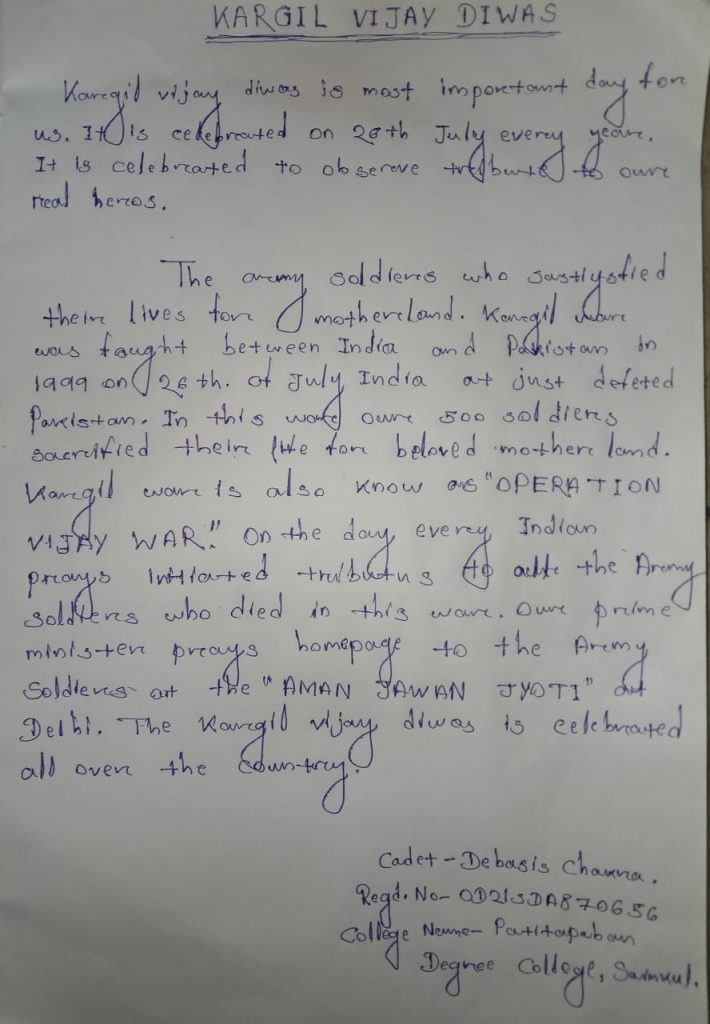 KARGIL VIJAY DIWAS
Kargil vijay diwas is most important day for
us. It is celebrated on 26th July every year.
It is celebrated to observe tribute to our
real heros.
The army soldiers who sastlysfied
their lives for motherland. Kargil war
was fought between India and Pakistan in
1999 on 26th. of July India at just defeted
Pakistan. In this war our 500 soldiers
sacrified their life for beloved mother land.
Kargil war is also know as "OPERATION
VIJAY WAR." On the day every Indian
prays initiated tributns to the Army
soldiers who died in this war. Our prime
minister prays homepage to the Army
Soldiers at the "AMAN JAWAN JYOTI" at
Delhi. The Kargil vijay diwas is celebrated
all over the country.
Cadet - Debasis Chakra.
Regd. No- OD21SDA870656
College Neme- Patitapaban
Degree College, Samkul.